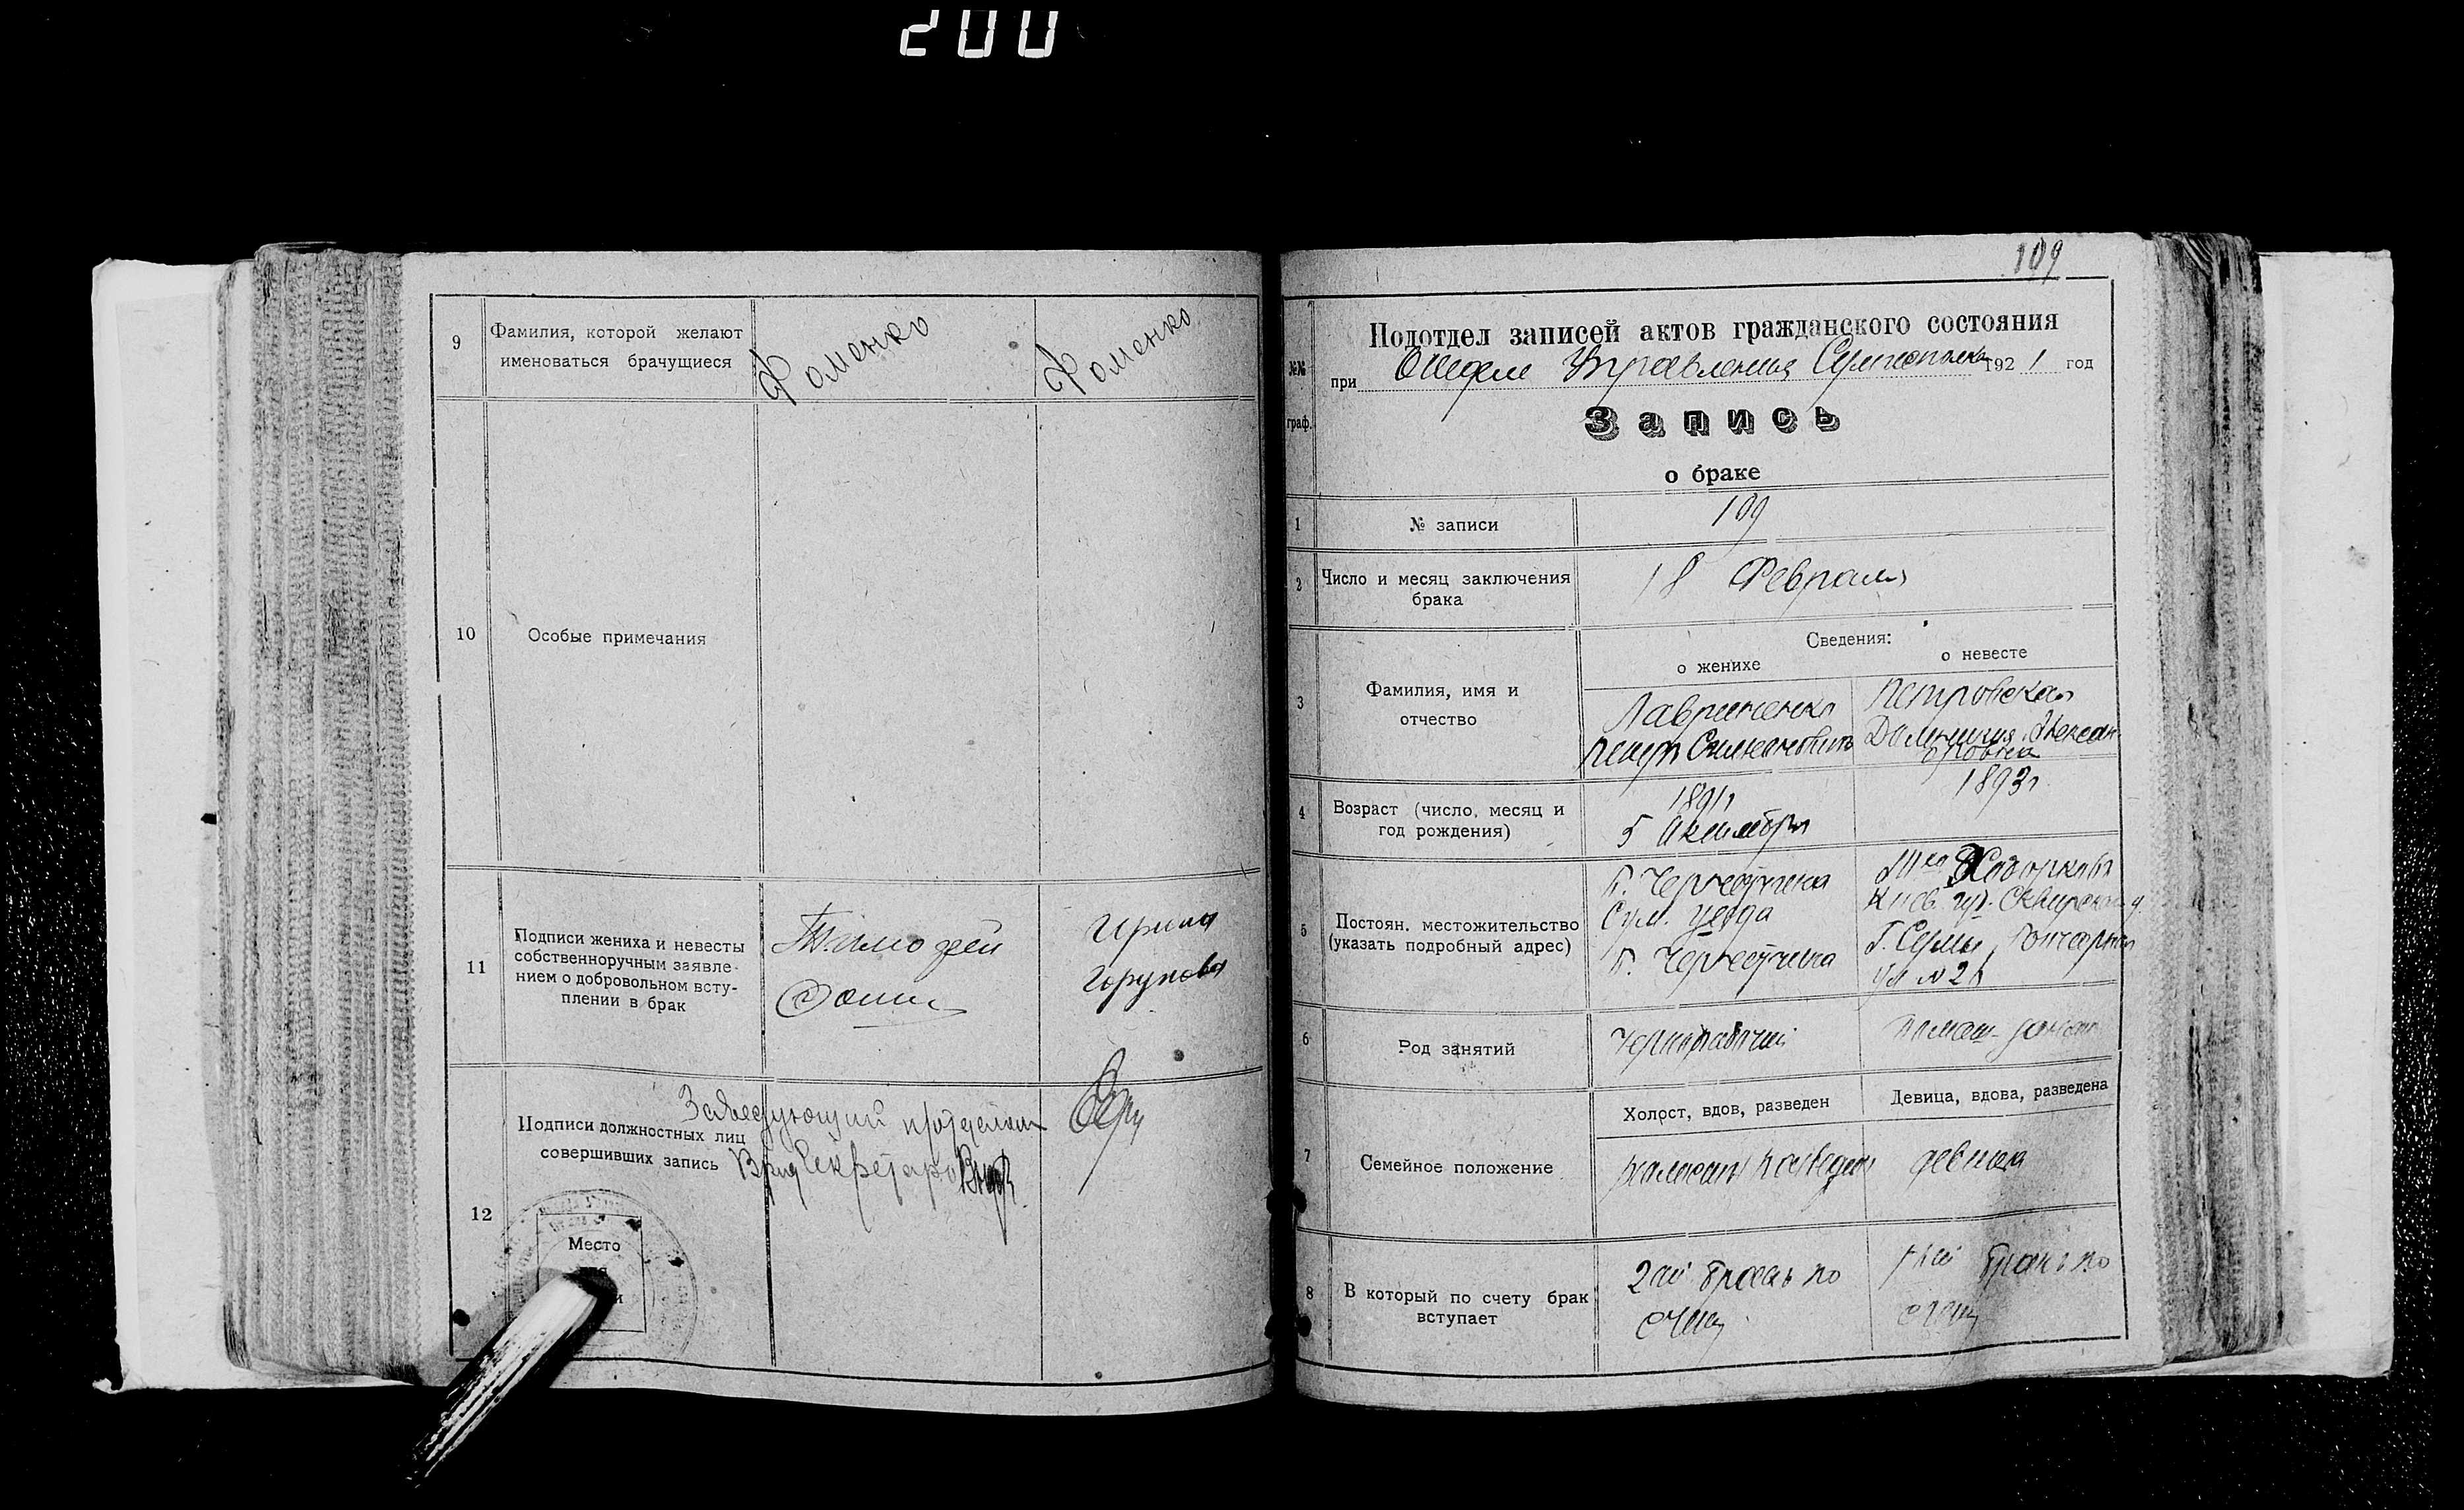 200
9
Фамилия, которой желают
именоваться брачущиеся
Фоменко
Фоменко
10
Особые примечания
11
Подписи жениха и невесты
собственноручным заявле-
нием о добровольном всту-
плении в брак
Тимофей
Фоми
Ирина
Горунова
12
Подписи должностных лиц
совершивших запись
Заведующий
Секретаря
Место
109
№№
граф.
Подотдел записей актов гражданского состояния
при Отделе Управления 1921 год
Запись
о браке
1
№ записи
109
2
Число и месяц заключения
брака
18 Февраля
Сведения:
о женихе
о невесте
3
Фамилия, имя и
отчество
Лавриненко
Петр
Петровская
Александ
ровна
4
Возраст (число, месяц и
год рождения)
1891г
5
1893г
5
Постоян. местожительство
(указать подробный адрес)
Сум. уезда
Киев. губ. Сквирского у.
Г. Сумы, Гончарная
ул N 21
6
Род занятий
Чернорабочий
7
Семейное положение
Холост, вдов, разведен
Девица, вдова, разведена
разведен
девица
8
В который по счету брак
вступает
2ой брак по
счету
1ый брак по
счету